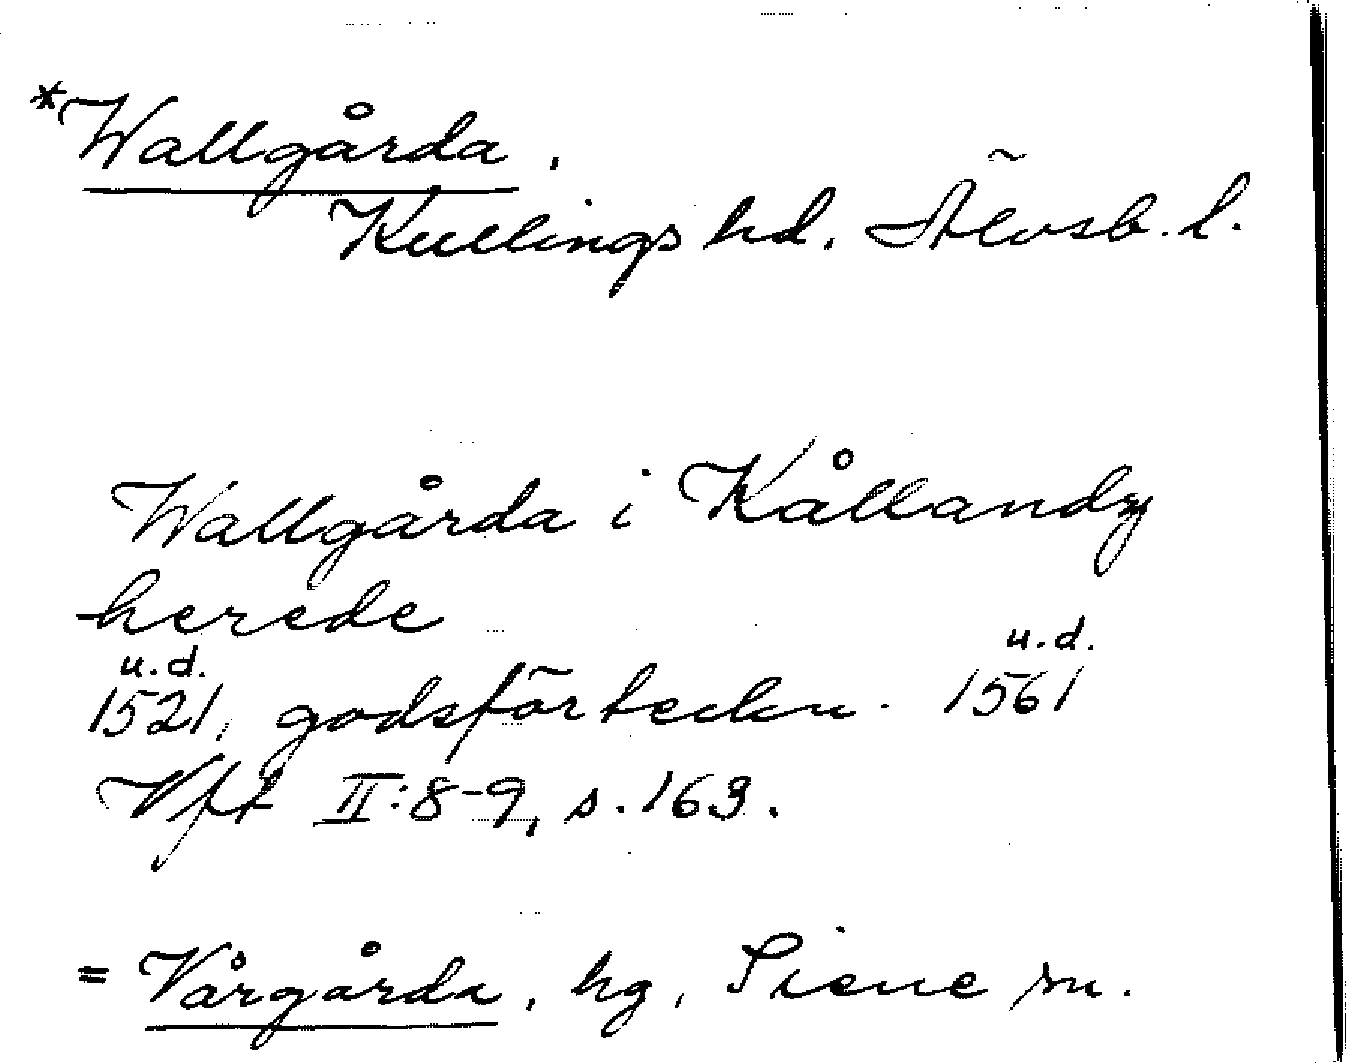 *Wallgårda.
Kullings hd. Älvsb. l.
Wallgårda i Kållandz
herede
u.d. u.d.
1521, godsförteckn. 1561
Vft II:8-9, s. 163.
= Vårgårda, hg, Siene sn.